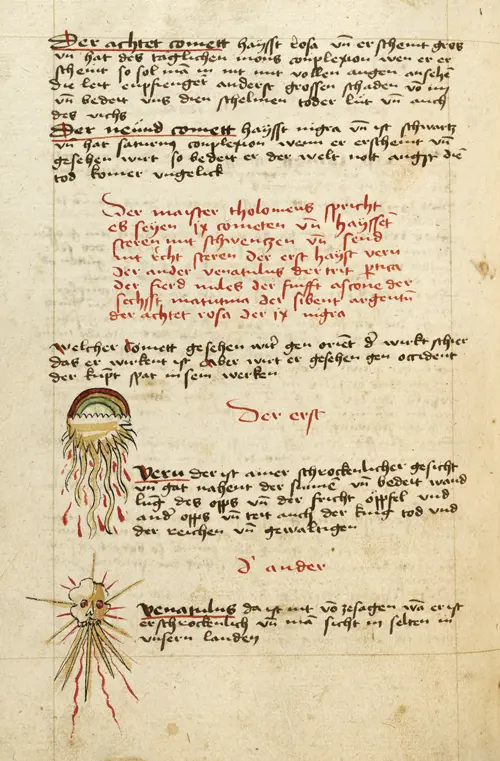 Der achtet comett haysst rosa vn̄ er scheint gros
vn̄ hat des taglichen mons conplexion wen er er
scheint so sol mā in nit mit vollen augen ansehen
die leit enpfienget anderst grossen schaden vō im
vn̄ bedeit vns dien schelmen toder lüt vn̄ auch
des vichs
Der neünd comett haysst nigra vn̄ ist schwartz
vn̄ hat saturnus conplexion wenn er erscheint vn̄
gesehen wirt so bedeit er der welt nott angst die
tod komer vngelick
Der maister tholomeus spricht
es seyen ix cometen vn̄ haysset
steren mit schwentzen vn̄ send
nit recht steren der erst hayst veru
der ander venatulus der trit ptica
der fierd miles der finfft ascone der
sechsst matutina der sibent argentū
der achtet rosa der ix nigra
Welcher comett gesehen wirt gen oriēt der wirkt schier
das er wirkent ist aber wirt er gesehen gen occident
der kūpt spat in sein werken
Der erst
Veru der ist ainer schrockenlicher gesicht
vn̄ gāt nahent der sunnē vn̄ bedeit wand
lung des opps vn̄ der fricht öpffel vnd
ander opps vn̄ teit auch der king tod vnd
der reichen vn̄ gewaltigen
d' ander
Venatulus da ist nit vō zesagen wā er ist
erschrockenlich vn̄ mā sicht in selten in
vnsern landen